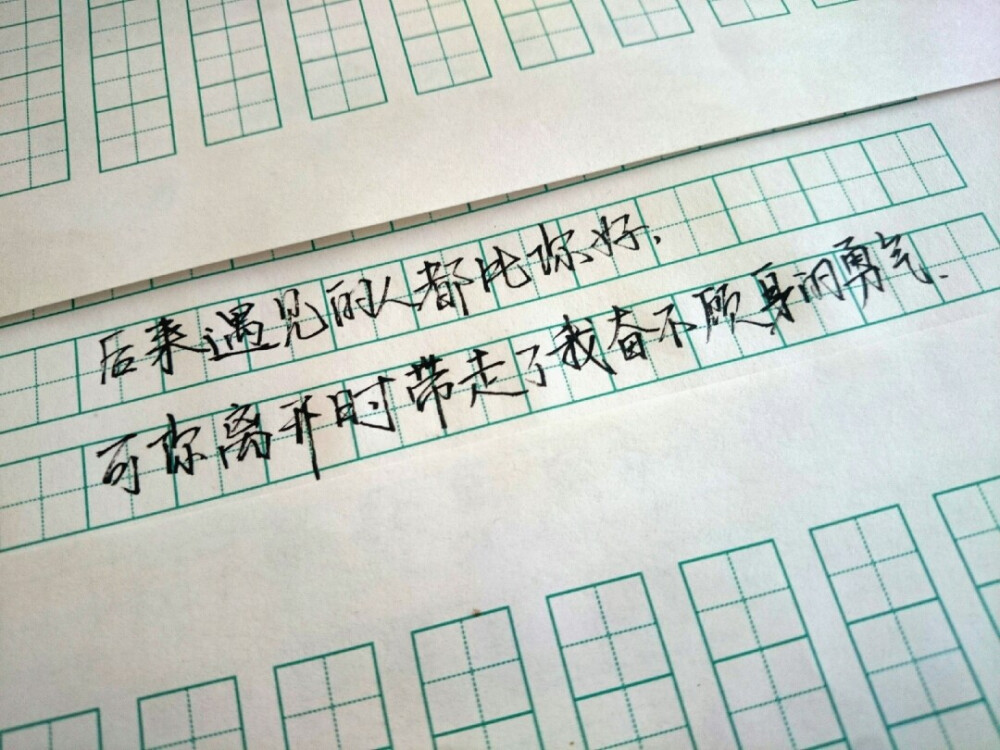 后来遇见的人都比你好.
可你离开时带走了我奋不顾身的勇气.